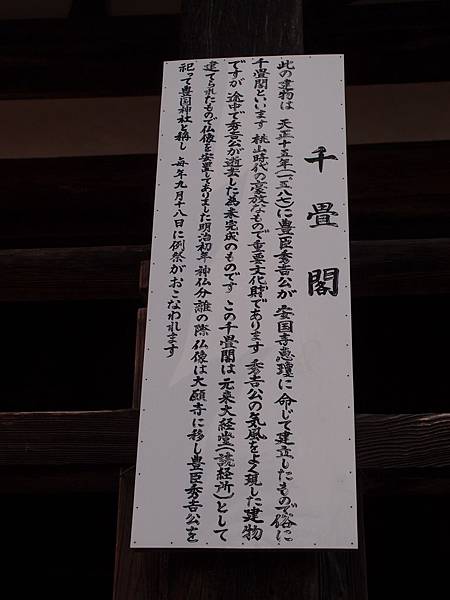 千畳閣
此の建物は 天正十五年(一五八七)に豊臣秀吉公が 安国寺恵瓊に命じて建立したもので俗に
千畳閣といいます 桃山時代の豪放なもので重要文化財であります 秀吉公の気風をよく現した建物
ですが 途中で秀吉公が逝去した為未完成のものです この千畳閣は元来大経堂(読経所)として
建てられたもので仏像を安置してありました明治初年神仏分離の際仏像は大願寺に移し豊臣秀吉公を
祀って豊国神社と称し 毎年九月十八日に例祭がおこなわれます